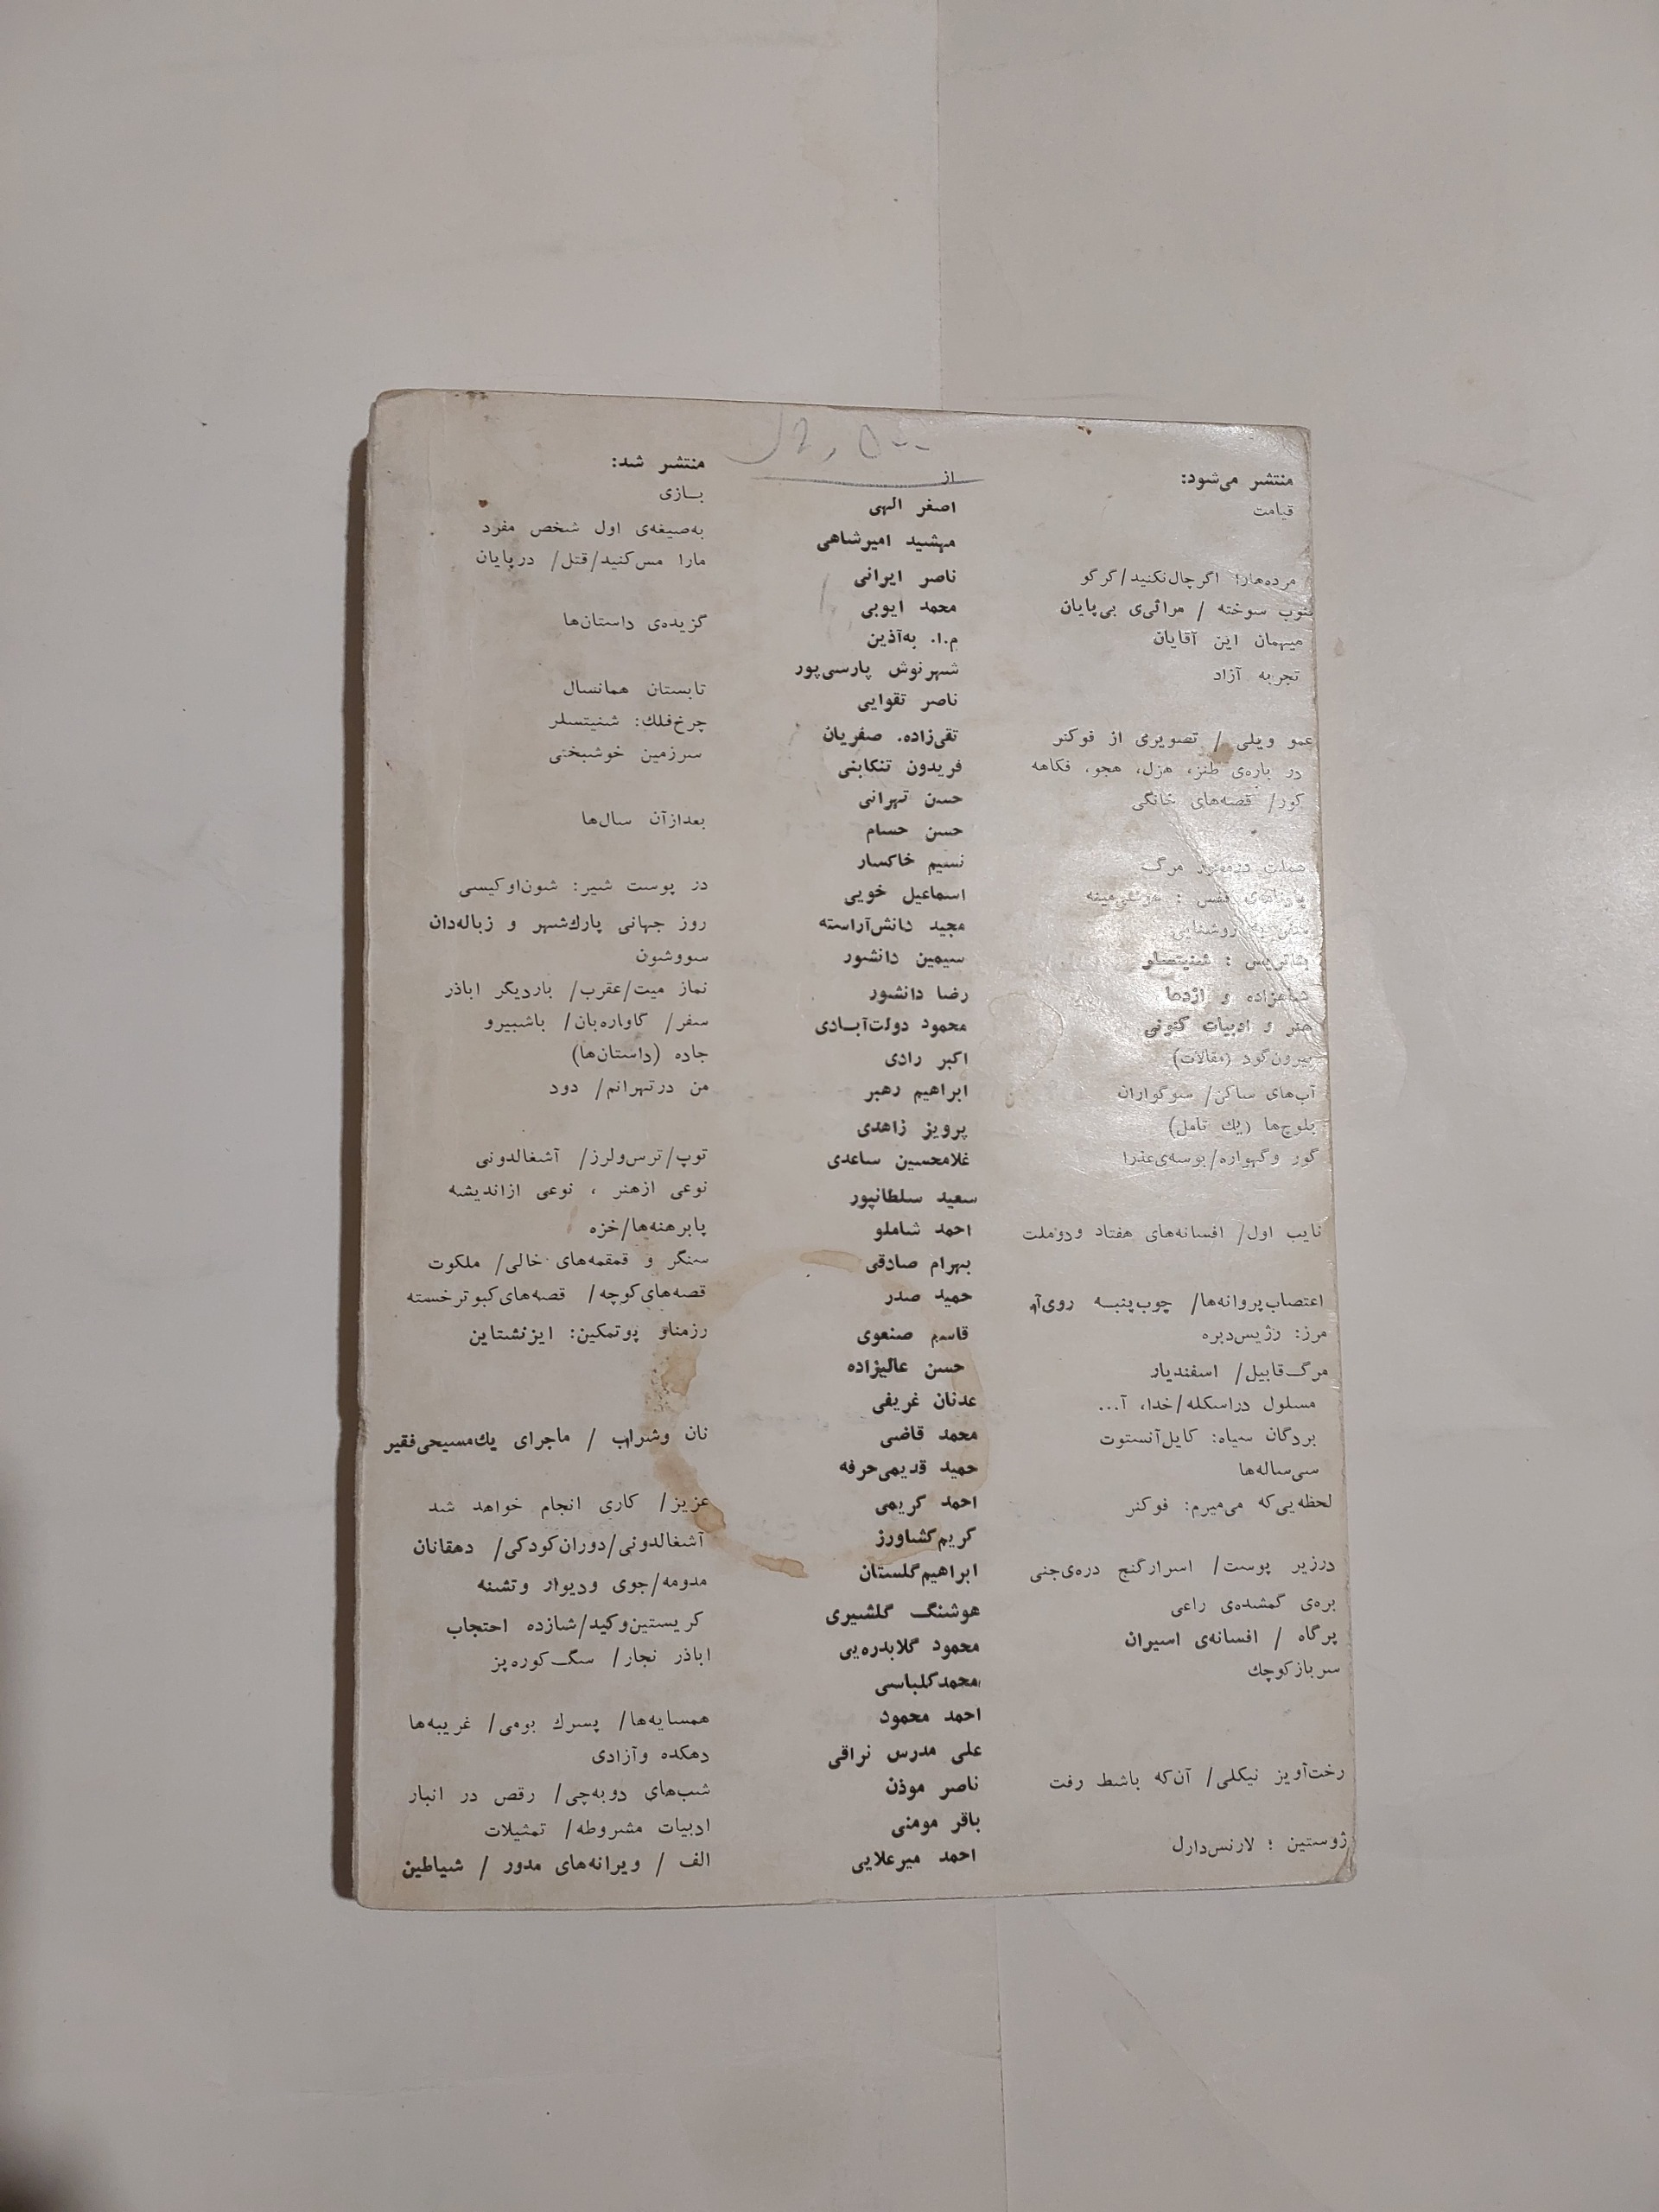 منتشر می‌شود: از منتشر شد:
قیامت اصغر الهی بازی
مهشید امیرشاهی به‌صیغه‌ی اول شخص مفرد
مرده‌هارا اگرچال‌نکنید/گرگو ناصر ایرانی مارا مس‌کنید/قتل/ درپایان
جنوب سوخته / مراثی‌ی بی‌پایان محمد ایوبی
میهمان این آقایان م.ا. به‌آذین گزیده‌ی داستان‌ها
تجربه آزاد شهرنوش پارسی‌پور
ناصر تقوایی تابستان همانسال
عمو ویلی / تصویری از فوکنر تقی‌زاده. صفریان چرخ‌فلك: شنیتسلر
در باره‌ی طنز، هزل، هجو، فکاهه فریدون تنکابنی سرزمین خوشبختی
کور/ قصه‌های خانگی حسن تهرانی
حسن حسام بعدازآن سال‌ها
مرگ نسیم خاکسار
قفس : اسماعیل خویی در پوست شیر: شون‌اوکیسی
به روشنایی مجید دانش‌آراسته روز جهانی پارك‌شهر و زباله‌دان
بئاتریس : شنیتسلر سیمین دانشور سووشون
شاهزاده و اژدها رضا دانشور نماز میت/عقرب/ باردیگر اباذر
هنر و ادبیات کنونی محمود دولت‌آبادی سفر/ گاواره‌بان/ باشبیرو
بیرون‌گود (مقالات) اکبر رادی جاده (داستان‌ها)
آب‌های ساکن/ سوگواران ابراهیم رهبر من درتهرانم/ دود
بلوچ‌ها (یك تامل) پرویز زاهدی
گور وگهواره/بوسه‌ی‌عذرا غلامحسین ساعدی توپ/ترس‌ولرز/ آشغالدونی
سعید سلطانپور نوعی ازهنر ، نوعی ازاندیشه
نایب اول/ افسانه‌های هفتاد ودوملت احمد شاملو پابرهنه‌ها/خزه
بهرام صادقی سنگر و قمقمه‌های خالی/ ملکوت
اعتصاب‌پروانه‌ها/ چوب‌پنبه روی‌آب حمید صدر قصه‌های‌کوچه/ قصه‌های‌کبوترخسته
مرز: رژیس‌دبره قاسم صنعوی رزمناو پوتمکین: ایزنشتاین
مرگ‌قابیل/ اسفندیار حسن عالیزاده
مسلول دراسکله/خدا، آ... عدنان غریفی
بردگان سیاه: کایل‌آنستوت محمد قاضی نان وشراب / ماجرای یك‌مسیحی‌فقیر
سی‌ساله‌ها حمید قدیمی‌حرفه
لحظه‌یی‌که می‌میرم: فوکنر احمد کریمی عزیز/ کاری انجام خواهد شد
کریم‌کشاورز آشغالدونی/دوران‌کودکی/ دهقانان
درزیر پوست/ اسرارگنج دره‌ی‌جنی ابراهیم‌گلستان مدومه/جوی ودیوار وتشنه
بره‌ی گمشده‌ی راعی هوشنگ گلشیری کریستین‌وکید/شازده احتجاب
پرگاه / افسانه‌ی اسیران محمود گلابدره‌یی اباذر نجار/ سگ‌کوره‌پز
سربازکوچك محمدکلباسی
احمد محمود همسایه‌ها/ پسرك بومی/ غریبه‌ها
علی مدرس نراقی دهکده وآزادی
رخت‌آویز نیکلی/ آن‌که باشط رفت ناصر موذن شب‌های دوبه‌چی/ رقص در انبار
باقر مومنی ادبیات مشروطه/ تمثیلات
ژوستین : لارنس‌دارل احمد میرعلایی الف / ویرانه‌های مدور / شیاطین